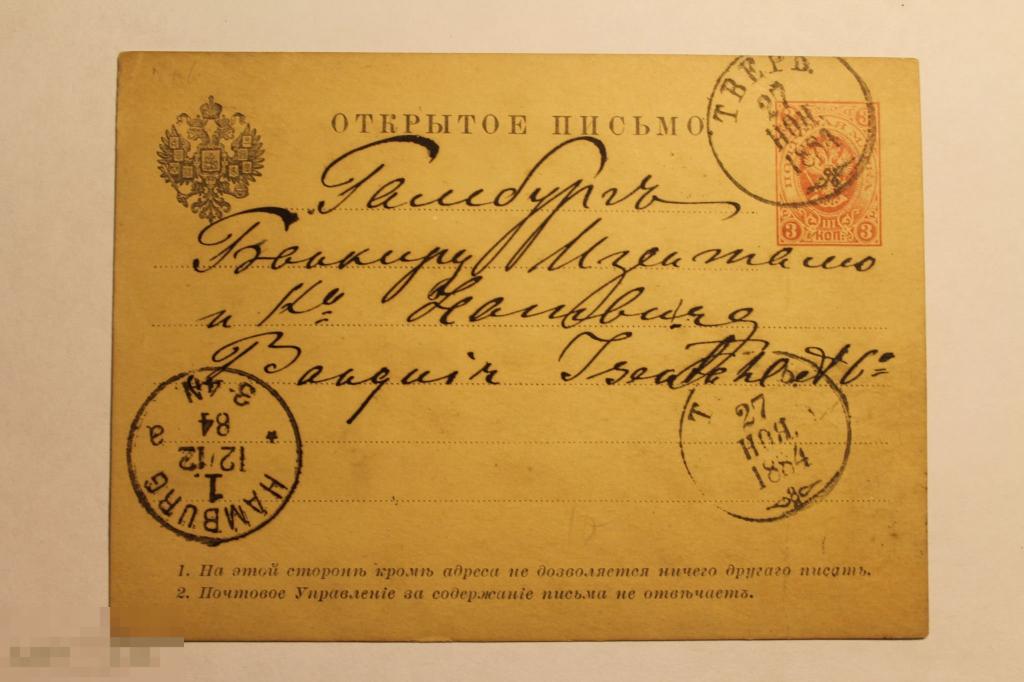 ОТКРЫТОЕ ПИСЬМО
ТВЕРЬ
27
НОЯ.
1884
3 3
III
КОП.
3 3
Гамбургъ
Банкиру Изенталю
и Ко Hamburg
Banquir Isenthal & Co
HAMBURG
1.
12/12
84
3-4N
a
Т
27
НОЯ.
1884
1. На этой сторонѣ кромѣ адреса не дозволяется ничего другаго писать.
2. Почтовое Управленіе за содержаніе письма не отвѣчаетъ.